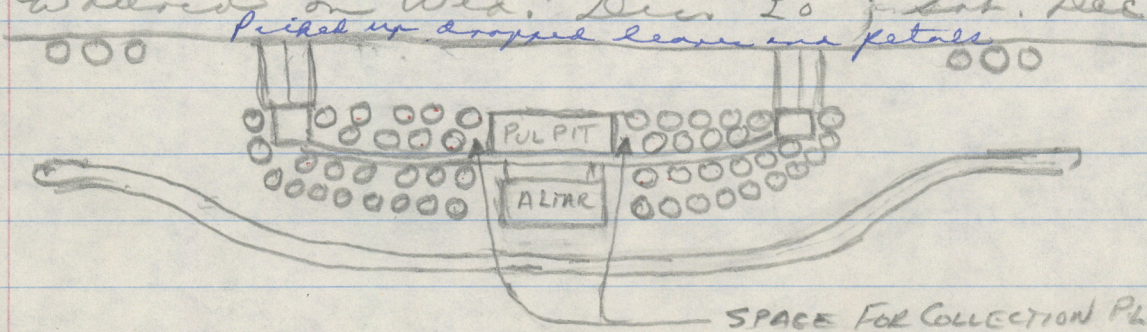 Watered on Wed. Dec. 20, Sat. Dec
Picked up dropped leaves and petals
PULPIT
ALTAR
SPACE FOR COLLECTION PL